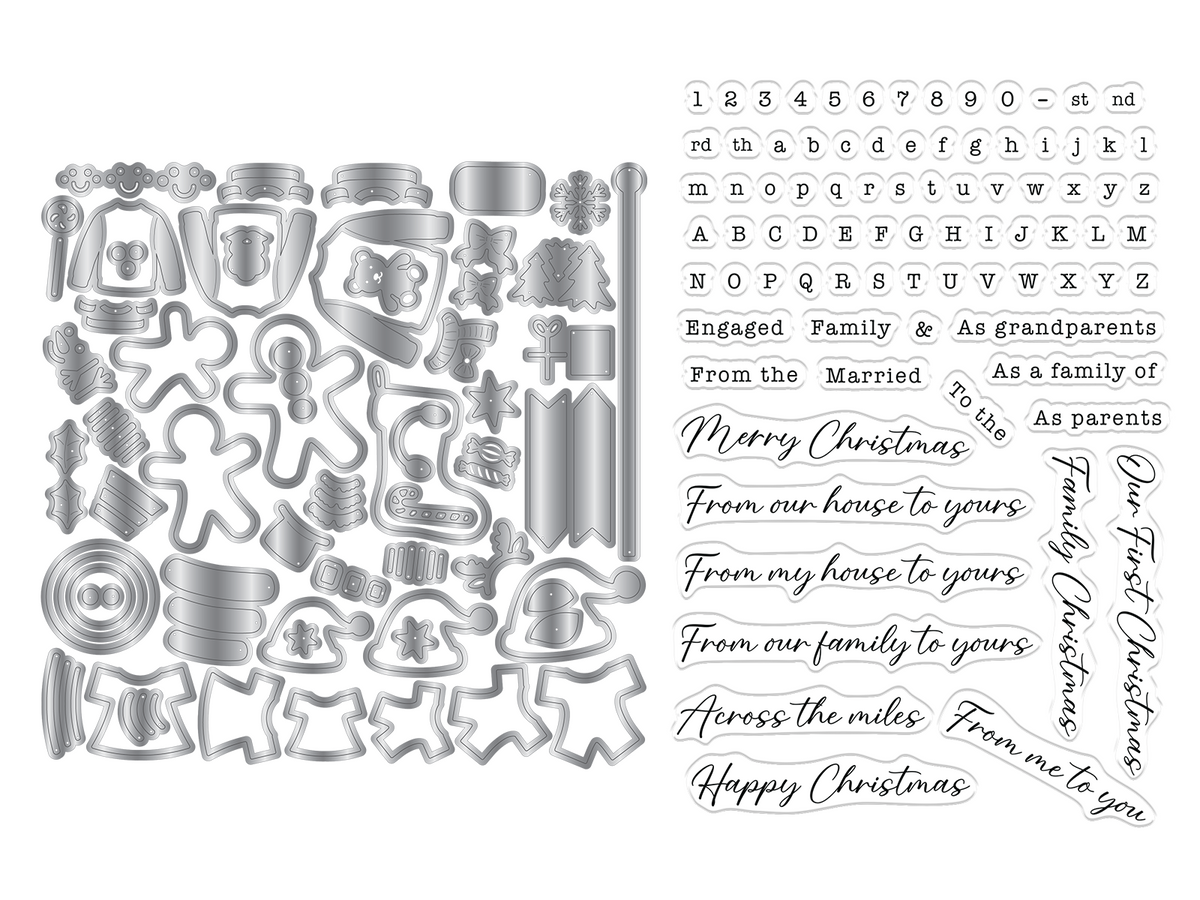 1 2 3 4 5 6 7 8 9 0 - st nd
rd th a b c d e f g h i j k l
m n o p q r s t u v w x y z
A B C D E F G H I J K L M
N O P Q R S T U V W X Y Z
Engaged Family & As grandparents
From the Married As a family of
To the
As parents
Merry Christmas
From our house to yours
From my house to yours
From our family to yours
Across the miles
Happy Christmas
Family Christmas
Our First Christmas
From me to you